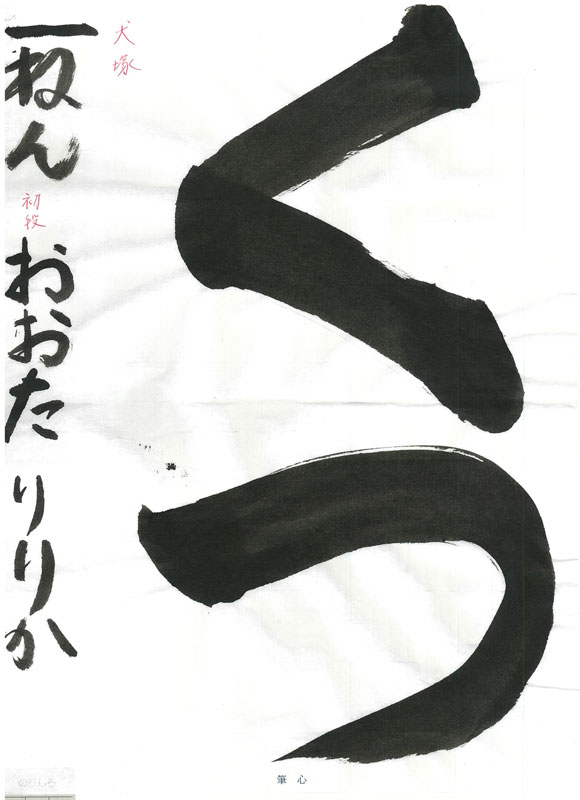 くつ
犬塚
一ねん おおた りりか
初段
筆心
のりしろ